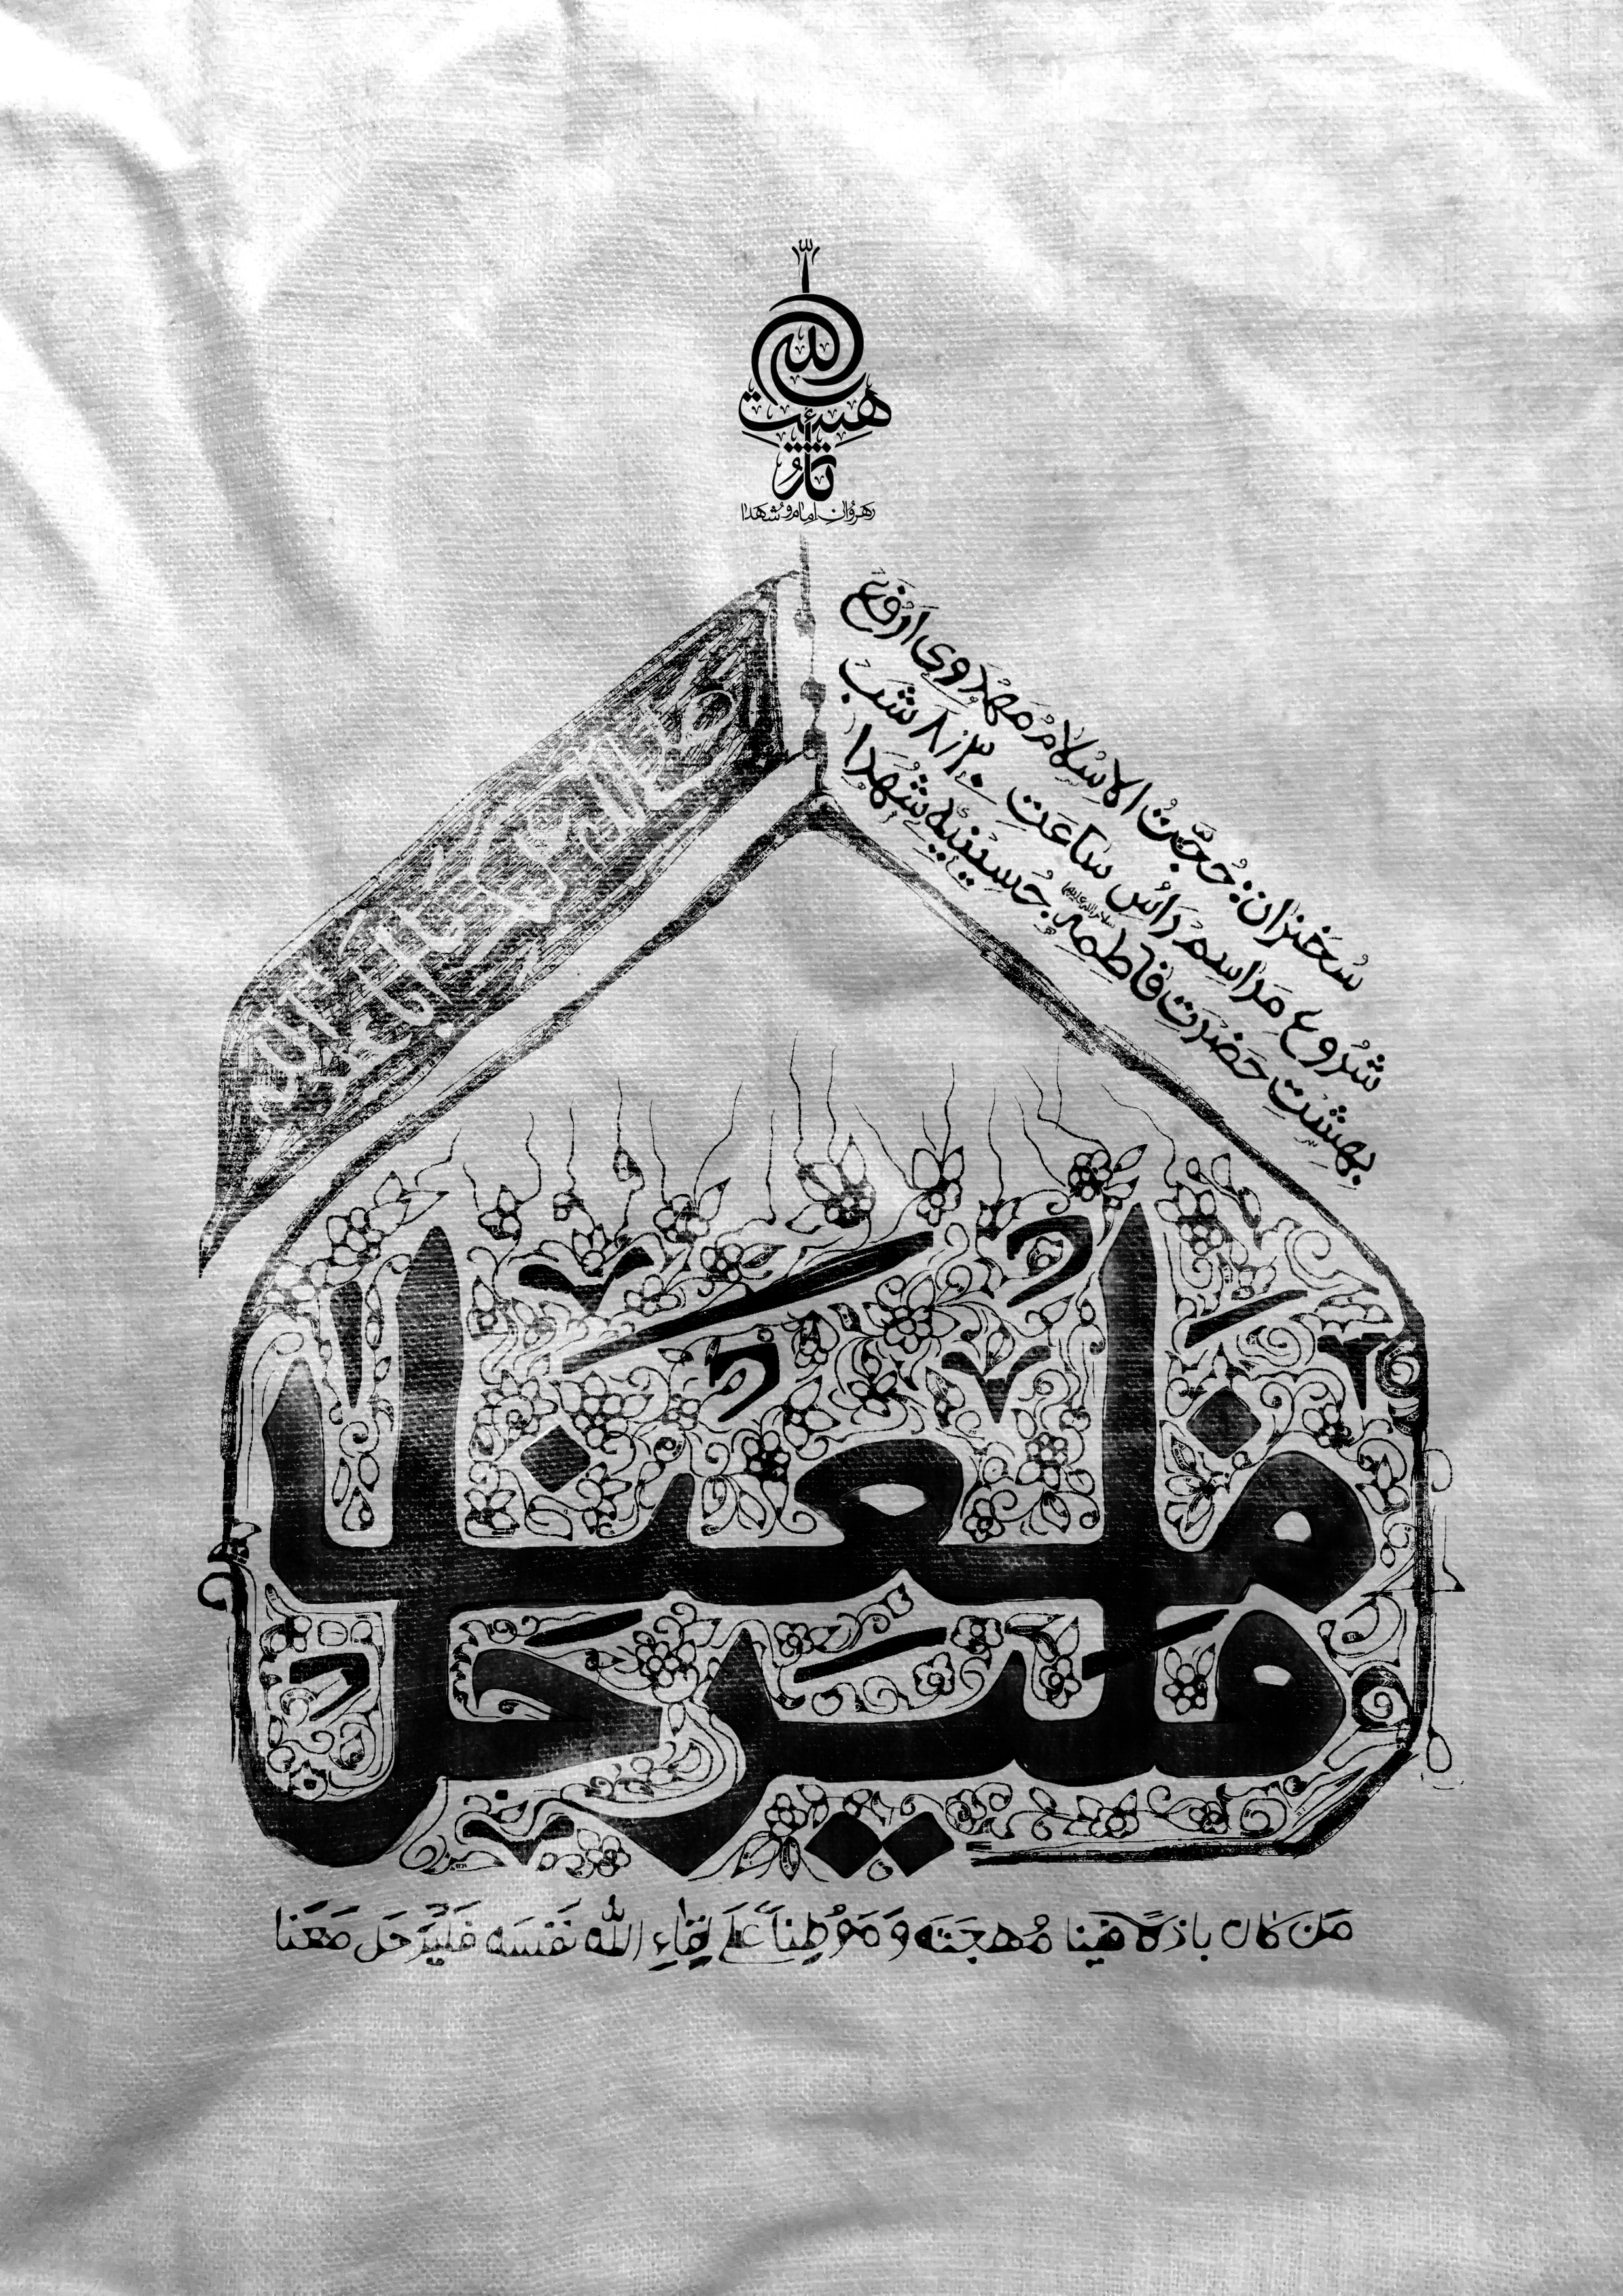 هیئت ثارالله
رهروان امام و شهدا
سُخَنران: حُجَّتُ الاِسْلامْ مَهْدَوِی اَرْفَعْ
شُرُوعِ مَرَاسِمْ رَاسُ سَاعَتِ ۸/۳۰ شَبْ
بِهِشْتِ حَضْرَتِ فَاطِمِه حُسِینِیِّهِ شُهَدَا
فَلْیَرْحَلْ مَعَنا
مَن کان باذِلاً فینا مُهجَتَه وَ مَوُطِناً عَلَی لِقاءِ الله نَفسَه فَلیَرحَل مَعَنا